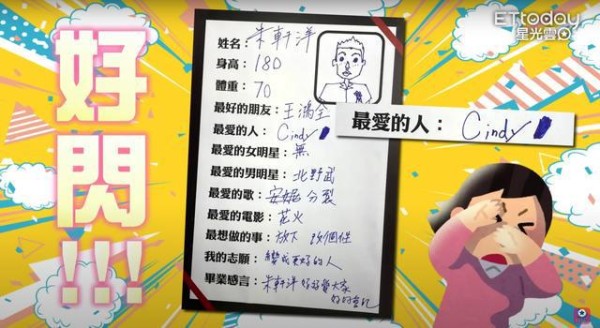 ETtoday
星光雲
好閃!!!
姓名：朱軒洋
身高：180
體重：70
最好的朋友：王滿全
最愛的人：Cindy
最愛的女明星：無
最愛的男明星：北野武
最愛的歌：安妮 分裂
最愛的電影：花火
最想做的事：放下 改個性
我的志願：變成更好的人
畢業感言：朱軒洋好好愛大家
最愛的人：Cindy